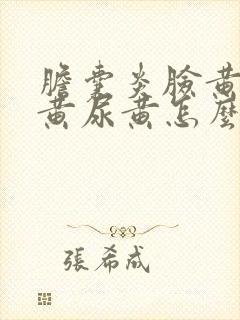 膽囊炎臉黃
黃尿黃怎麼
張希成